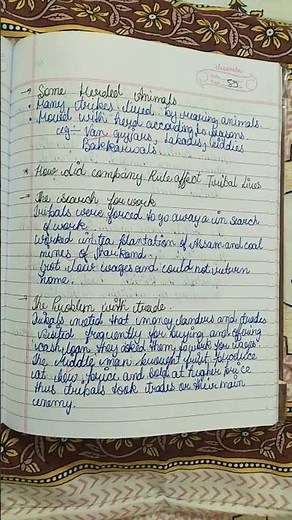 → Some Herded Animals
• Many tribes lived by rearing animals.
• Moved with herd according to seasons.
eg:- Van gujjars, Labadis, Gaddis
Bakkarwals
* How did company Rule affect Tribal Lives
→ The search for work
Tribals were forced to go away in search
of work.
Worked in tea plantation of Assam and coal
mines of Jharkand.
Got low wages and could not return
home.
→ The Problem with trade:
Tribals noticed that money lenders and trades
visited frequently for buying and offering
cash loan, they asked them to work for wages.
The Middle man bought fruit produce
at low price and sold at higher price
thus tribals took trades or their main
enemy.